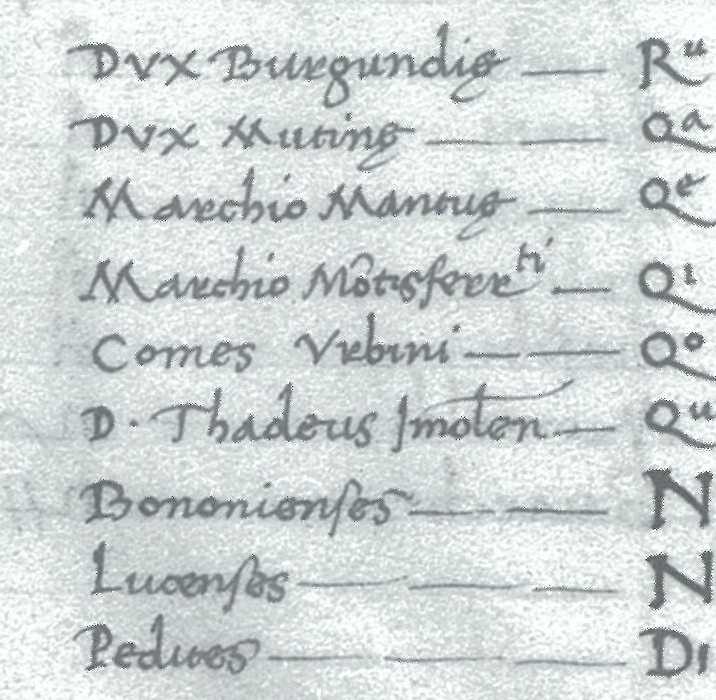 Dvx Burgundię — Rᵘ
Dvx Mutinę — — Qᵃ
Marchio Mantuę — Qᵉ
Marchio Mōtisferrᵗⁱ — Qⁱ
Comes Vrbini — — Qᵒ
D. Thadeus Imolen̄ — Qᵘ
Bononienses — — N
Lucenses — — — N
Peduces — — — Di